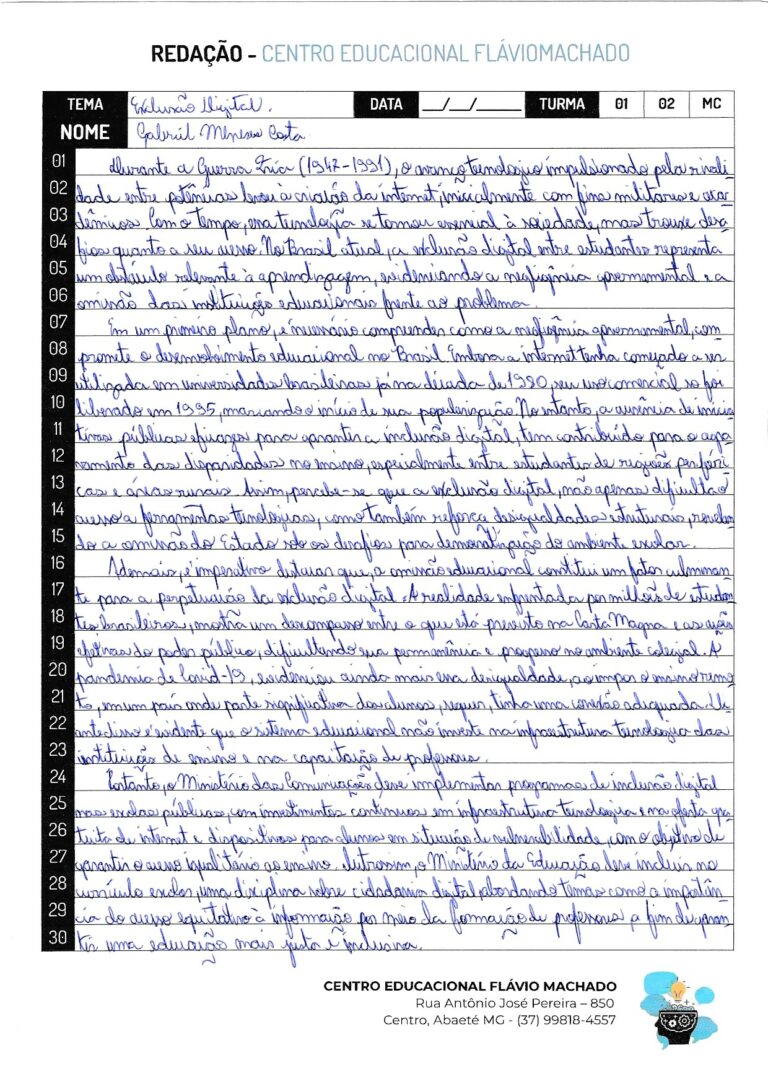 REDAÇÃO - CENTRO EDUCACIONAL FLÁVIOMACHADO
TEMA Exclusão Digital. DATA __/__/____ TURMA 01 02 MC
NOME Gabriel Meneses Costa
01 Durante a Guerra Fria (1947-1991), o avanço tecnologico impulsionado pela rivali-
02 dade entre potências levou à criação da internet, inicialmente com fins militares e aca-
03 dêmicos. Com o tempo, essa tecnologia se tornou essencial à sociedade, mas trouxe desa-
04 fios quanto a seu acesso. No Brasil atual, a exclusão digital entre estudantes representa
05 um obstáculo relevante à aprendizagem, evidenciando a negligência governamental e a
06 omissão das instituições educacionais frente ao problema.
07 Em um primeiro plano, é necessário compreender como a negligência governamental, com-
08 promete o desenvolvimento educacional no Brasil. Embora a internet tenha começado a ser
09 utilizada em universidades brasileiras já na década de 1980, seu uso comercial so foi
10 liberado em 1995, marcando o início de sua popularização. No entanto, a ausência de inicia-
11 tivas públicas eficazes para garantir a inclusão digital, tem contribuído para o agra-
12 vamento das disparidades no ensino, especialmente entre estudantes de regiões periféri-
13 cas e áreas rurais. Assim, percebe-se que a exclusão digital, não apenas dificulta o
14 acesso a ferramentas tecnologicas, como também reforça desigualdades estruturais, revelan-
15 do a omissão do Estado sob os desafios para democratização do ambiente escolar.
16 Ademais, é imperativo destacar que, a omissão educacional constitui um fator culminan-
17 te para a perpetuação da exclusão digital. A realidade enfrentada por milhões de estudan-
18 tes brasileiros, mostra um descompasso entre o que está previsto na Carta Magna e as ações
19 efetivas do poder público, dificultando sua permanência e progresso no ambiente colegial. A
20 pandemia de Covid-19, evidenciou ainda mais essa desigualdade, ao impor o ensino remo-
21 to, em um país onde parte significativa dos alunos, sequer, tinha uma conexão adequada. Di-
22 ante disso é evidente que o sistema educacional não investe na infraestrutura tecnologica das
23 instituições de ensino e na capacitação de professores.
24 Portanto, o Ministério das Comunicações deve implementar programas de inclusão digital
25 nas escolas públicas, com investimentos contínuos em infraestrutura tecnologica e na oferta gra-
26 tuita de internet e dispositivos para alunos em situação de vulnerabilidade, com o objetivo de
27 garantir o acesso igualitário ao ensino. Outrossim, o Ministério da Educação deve incluir no
28 currículo escolar, uma disciplina sobre cidadania digital, abordando temas como a importân-
29 cia do acesso equitativo à informação por meio da formação de professores, a fim de garan-
30 tir uma educação mais justa e inclusiva.
CENTRO EDUCACIONAL FLÁVIO MACHADO
Rua Antônio José Pereira – 850
Centro, Abaeté MG - (37) 99818-4557